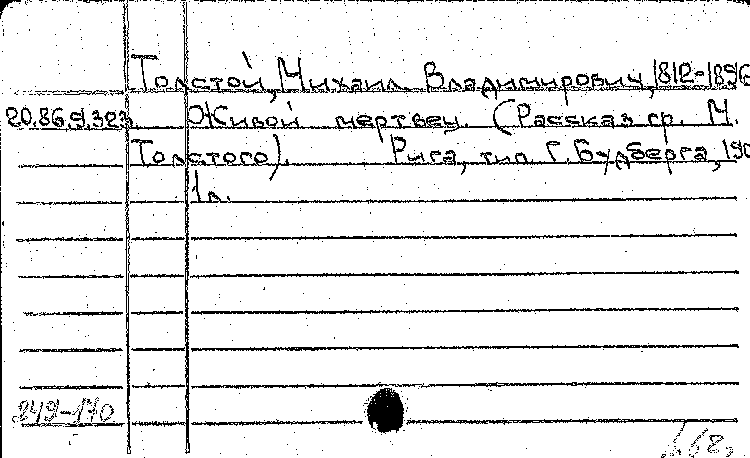 Толстой, Михаил Владимирович, 1812-1896
20.86.9.323. Живой мертвец. (Рассказ гр. М.
Толстого). Рига, тип. Г. Будберга, 190
1л.
249-170